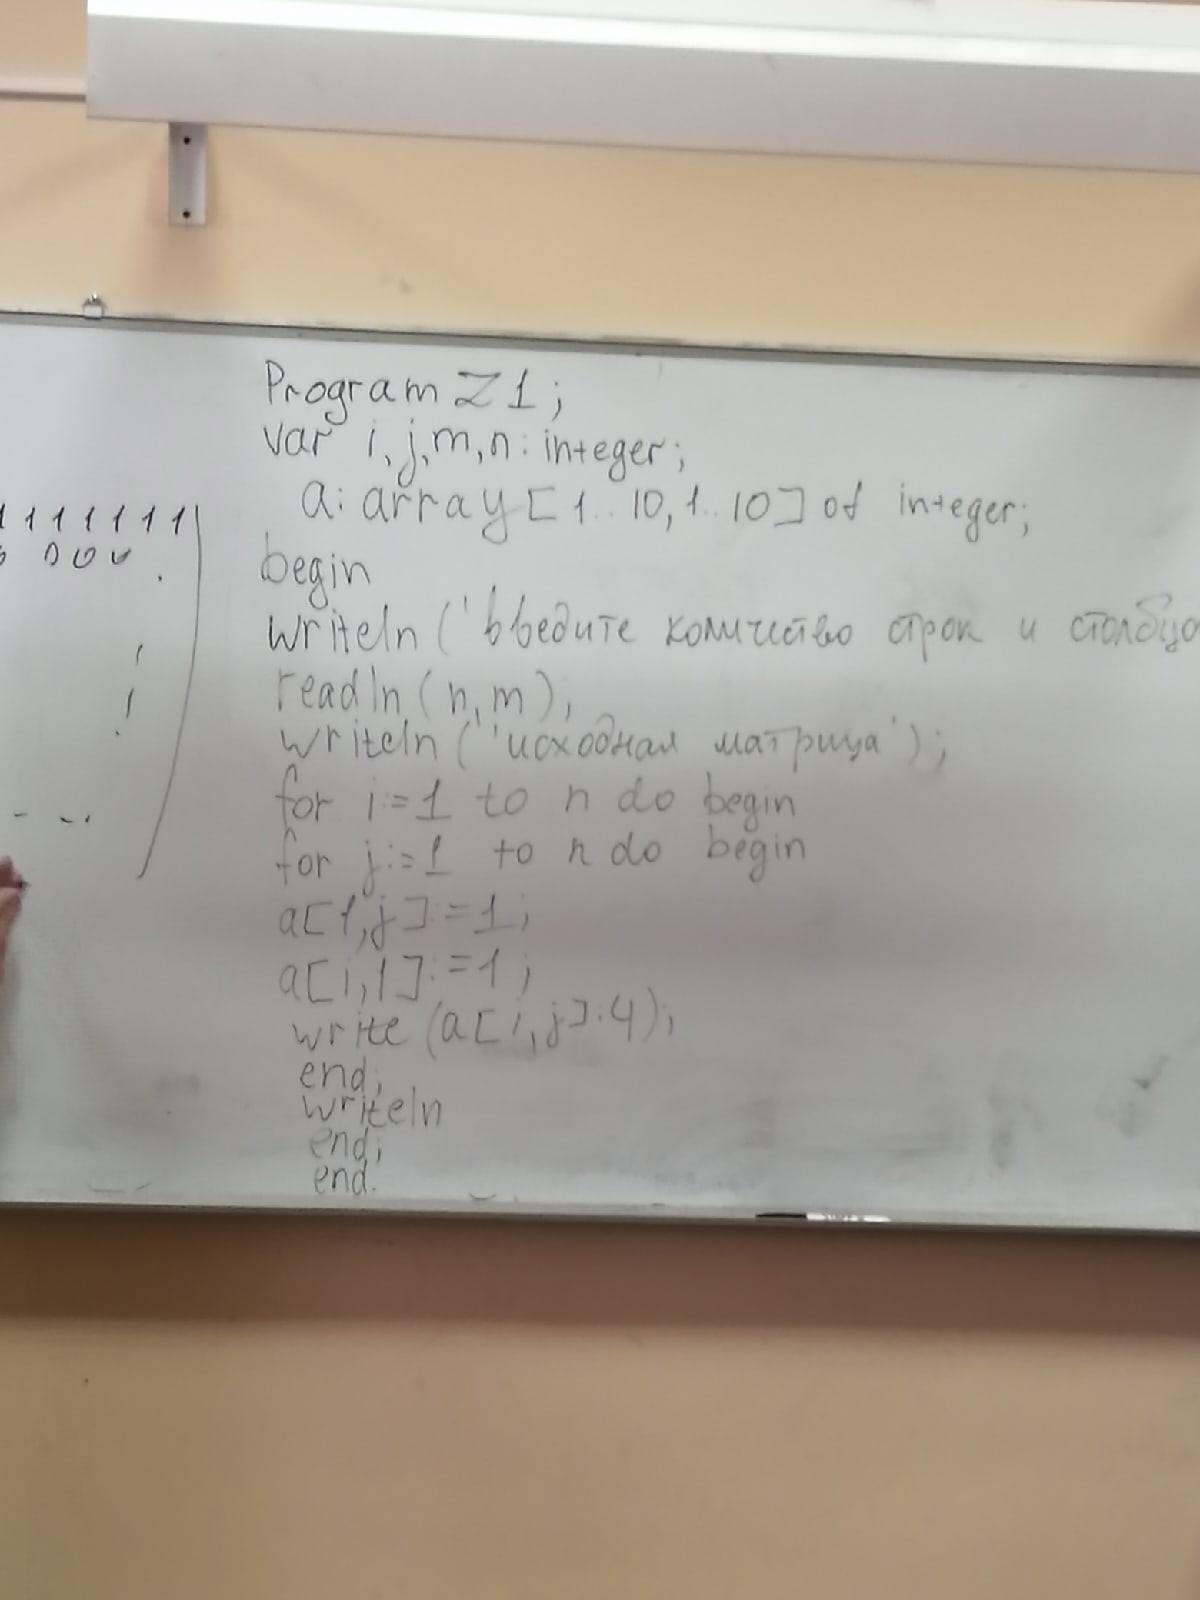 Program Z1;
var i,j,m,n: integer;
a: array [1..10,1..10] of integer;
1 1 1 1 1 1 1
begin
0 0 0
writeln ('введите количество строк и столбцо
readln (n,m);
writeln ('исходная матрица');
for i:=1 to n do begin
for j:=1 to n do begin
a[1,j]:=1;
a[i,1]:=1;
write (a[i,j]:4);
end;
writeln
end;
end.